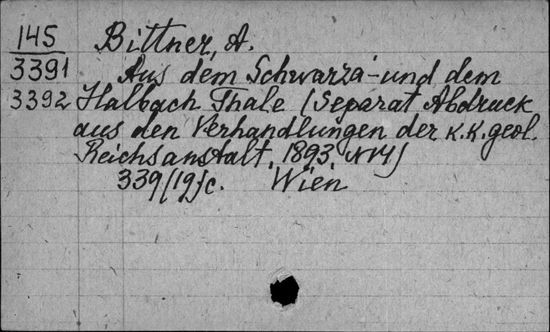 145 Bittner, A.
3391 Aus dem Schwarza- und dem
3392 Halbach Thale (Separat Abdruck
aus den Verhandlungen der K.K. geol.
Reichsanstalt, 1893, N14)
339/19/c. Wien